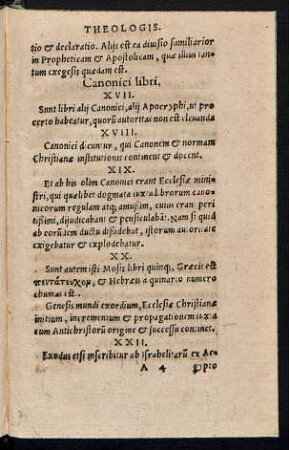 THEOLOGIS.
tio & declaratio. Alijs est ea diuisio familiarior
in Propheticam & Apostolicam, quæ illius tan-
tum exegesis quædam est.
Canonici libri.
XVII.
Sunt libri alij Canonici, alij Apocryphi, ut pro
certo habeatur, quorũ autoritas non est eleuanda
XVIII.
Canonici dicuntur, qui Canonem & normam
Christianæ institutionis continent & docent.
XIX.
Et ab his olim Canonici erant Ecclesiæ mini-
stri, qui quælibet dogmata iuxta librorum canō
nicorum regulam atq; amussim, cuius eran peri
tissimi, dijudicabant & pensiculabāt. Nam si quid
ab eorũdem ductu dissidebat, istorum autoritate
exigebatur & explodebatur.
XX.
Sunt autem isti Mosis libri quinq; Græcis est
πεντάτευχομ, & Hebræis a quinario numero
chumas est.
Genesis mundi exordium, Ecclesiæ Christianæ
initium, incrementum & propagationem iuxta
cum Antichristorũ origine & successu continet.
XXII.
Exodus etsi inscribitur ab Israhelitarũ ex Ae-
A 4 gypto